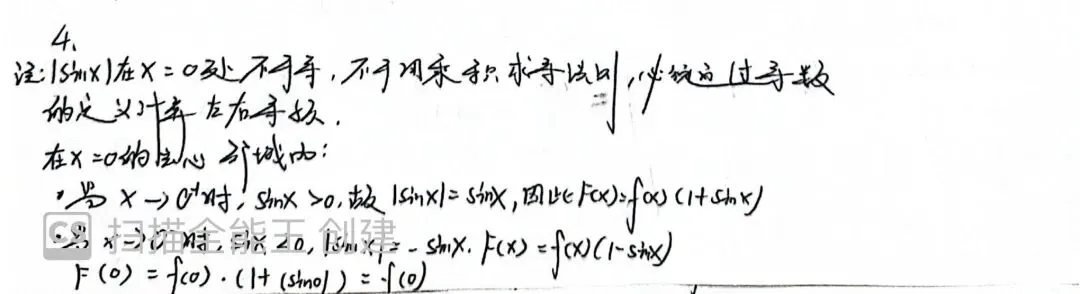 4.
注:|sinx|在x=0处不可导,不可用乘积求导法则,必须通过导数
的定义计算左右导数.
在x=0的去心邻域内:
·当x→0⁺时,sinx>0,故|sinx|=sinx,因此F(x)=f(x)(1+sinx)
·当x→0⁻时,sinx<0,|sinx|=-sinx.F(x)=f(x)(1-sinx)
F(0)=f(0)·(1+|sin0|)=f(0)
CS 扫描全能王 创建